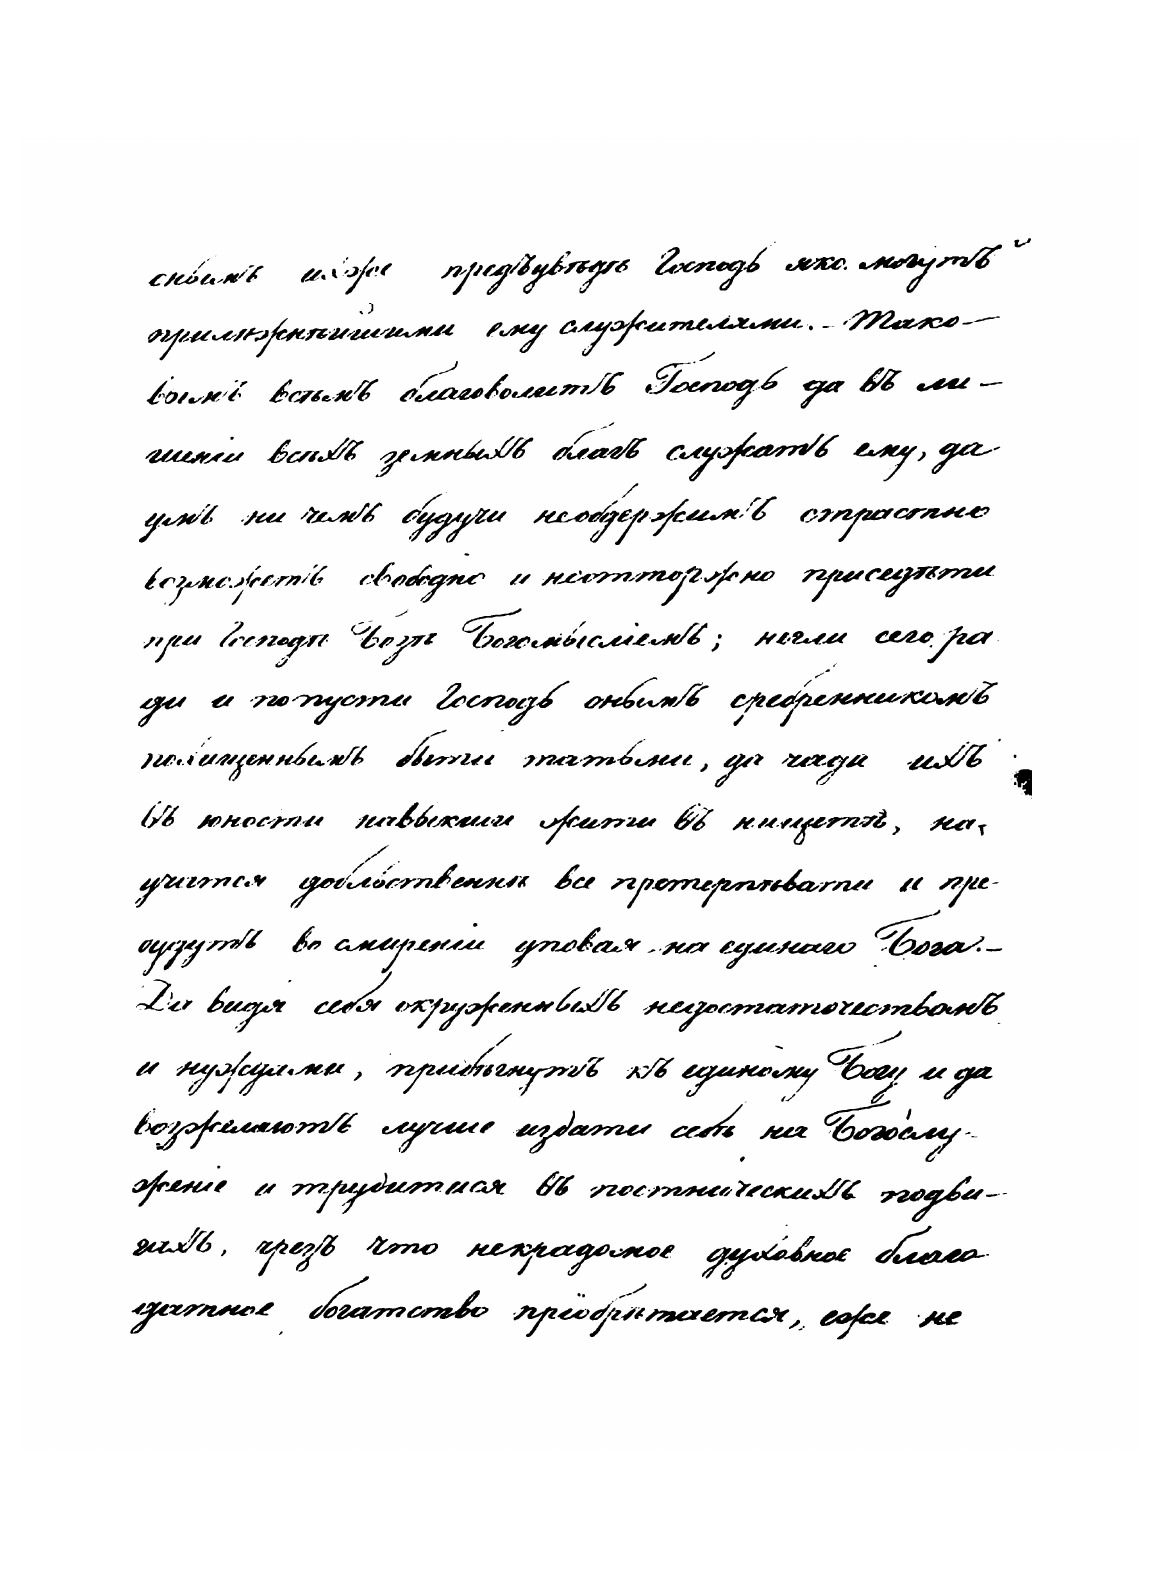 снымъ ихже предъувѣдѣ Господь яко могутъ
прилѣжнѣйшими ему служителями. – Тако-
вымъ всѣмъ благоволитъ Господь да въ ли-
шеніи всѣхъ земныхъ благъ служатъ ему, да
умъ ни чемъ будучи необдержимъ страстно
возможетъ свободно и неотторжно приседѣти
при Господѣ Бозѣ Богомысліемъ; негли сего ра
ди и попусти Господь онымъ сребренникомъ
похищеннымъ быти татьми, да чада ихъ
въ юности навыкши жити въ нищетѣ, на-
учатся доблественнѣ все претерпѣвати и пре-
будутъ во смиреніи уповая на единаго Бога. –
Да видя себя окруженныхъ недостаточествомъ
и нуждами, прибѣгнутъ къ единому Богу и да
возжелаютъ лучше издати себѣ на Богослу-
женіе и трудитися въ постническихъ подви-
гахъ, чрезъ что некрадомое духовное благо
датное богатство пріобрѣтается, еже не